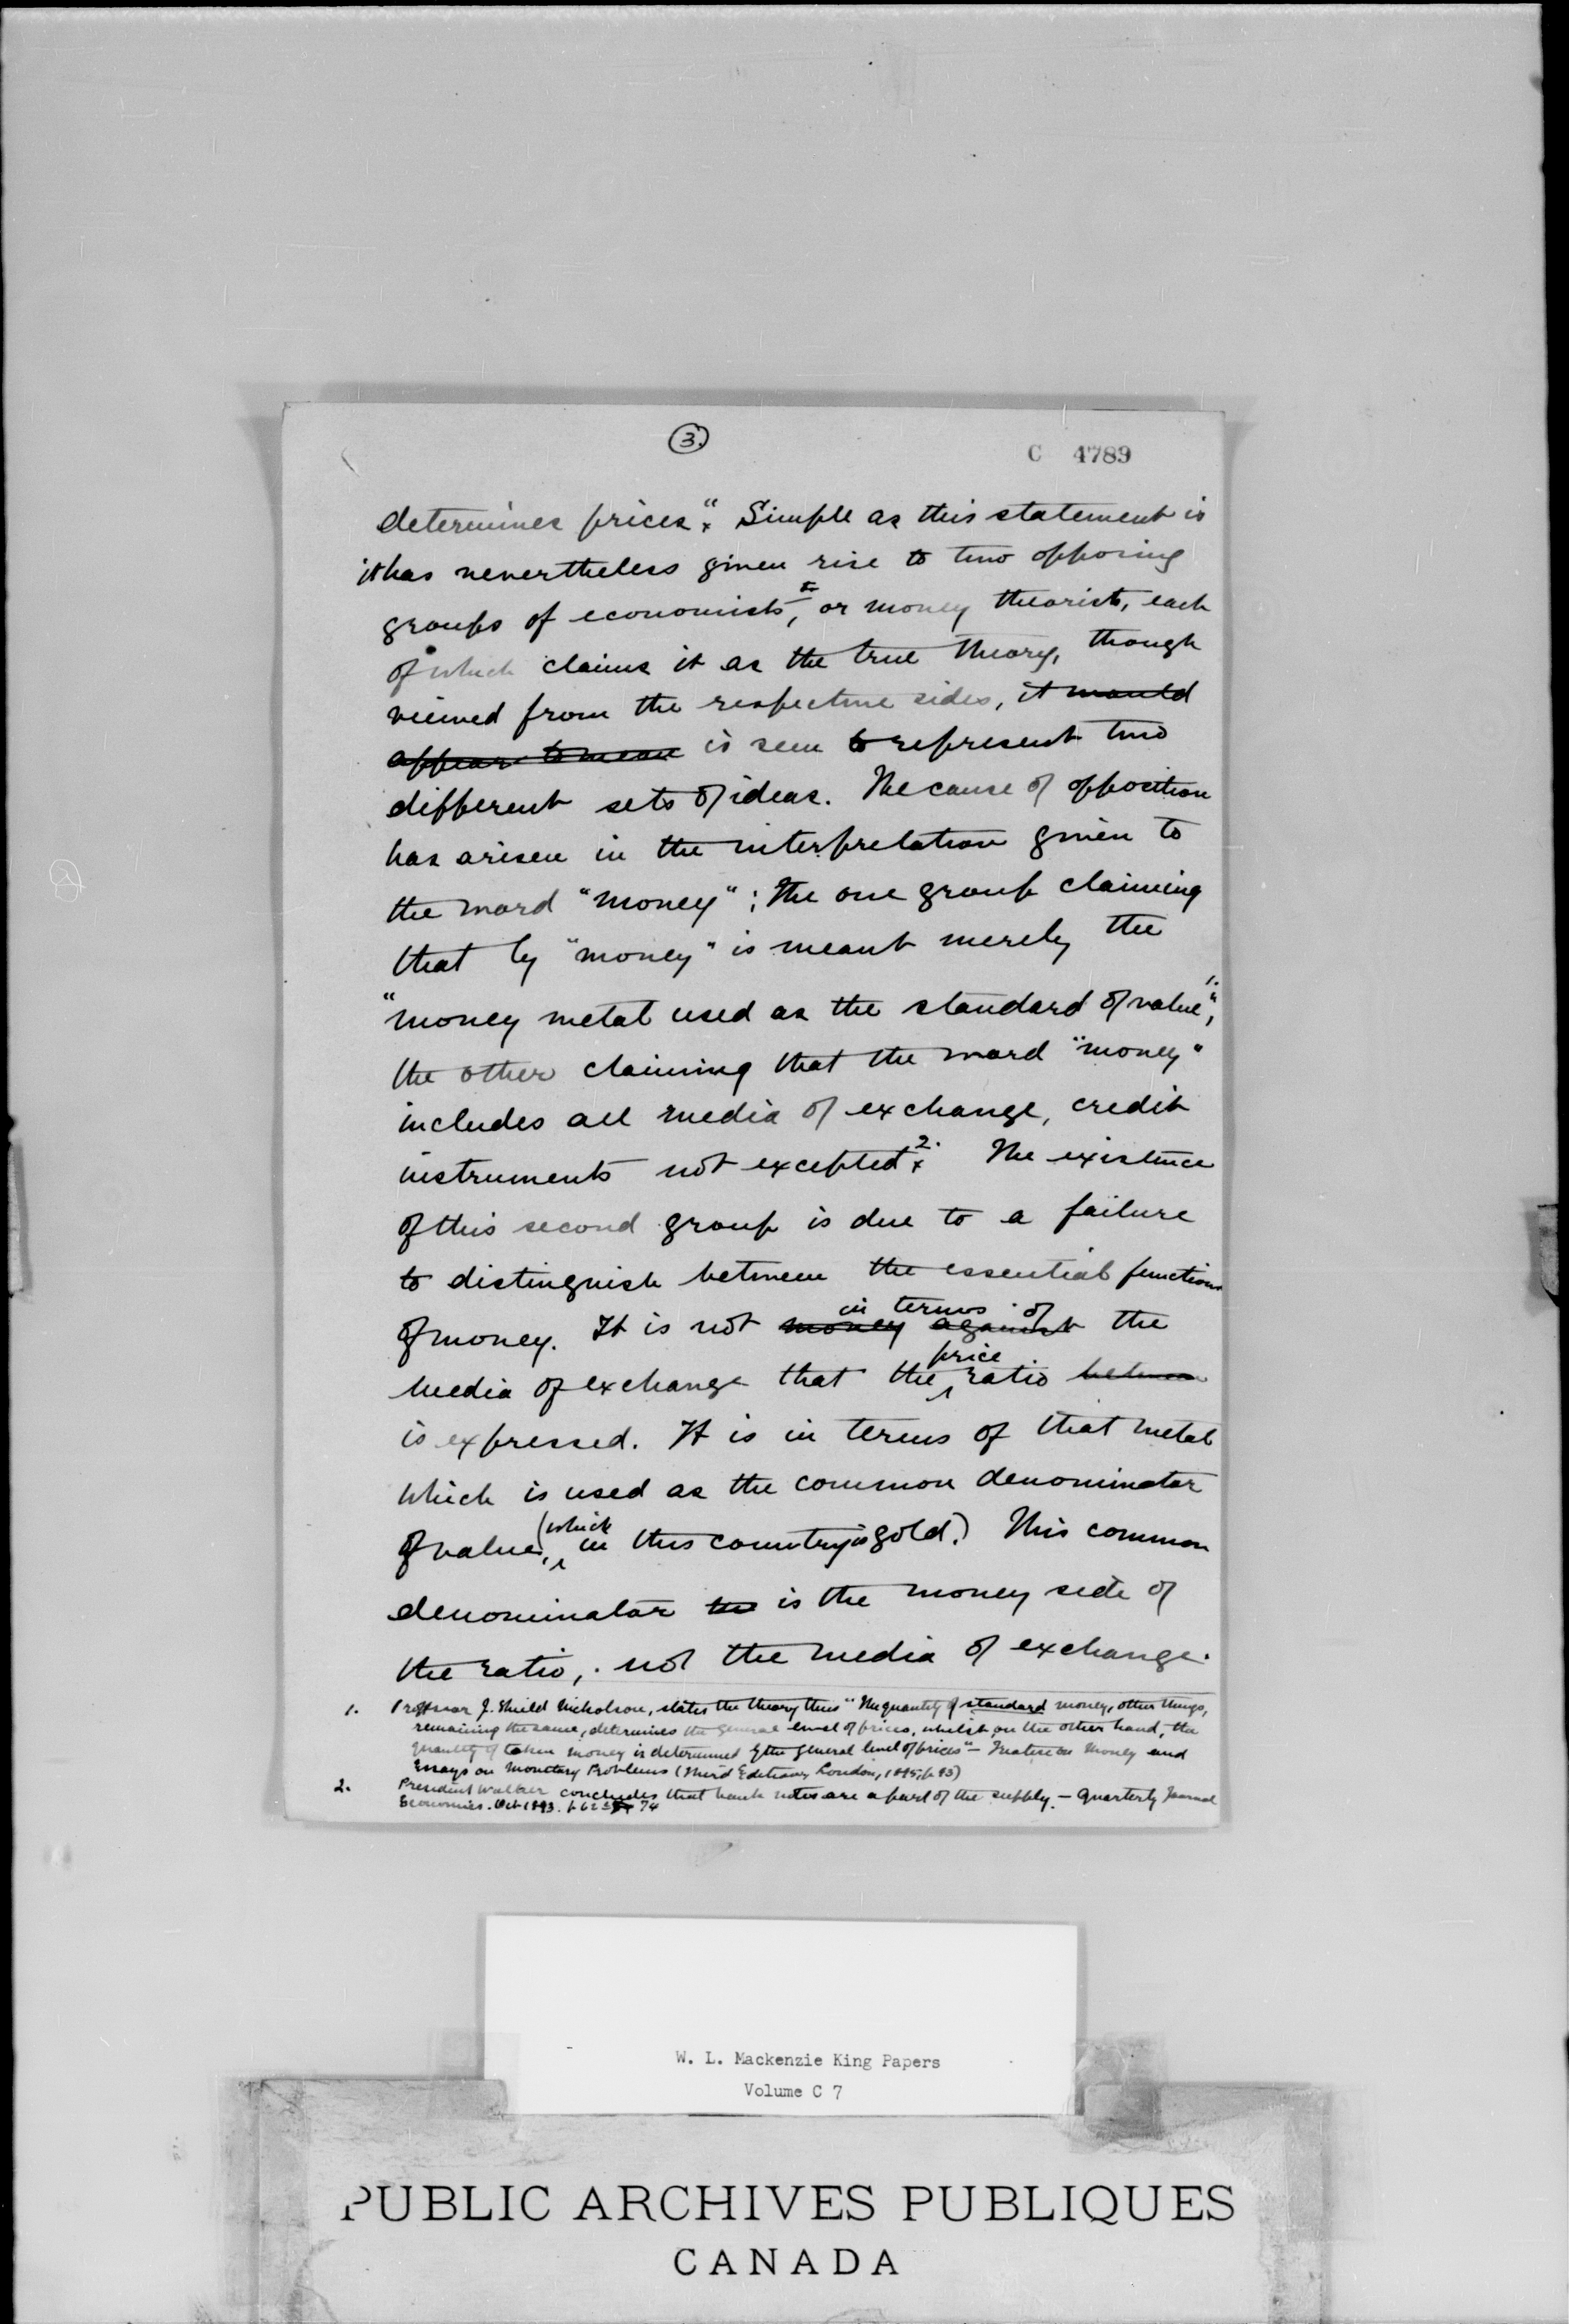 3.
C 4789
determines prices". Simple as this statement is
it has nevertheless given rise to two opposing
groups of economists, or money theorists, each
of which claims it as the true theory, though
viewed from the respective sides, it would
appear to mean is seen to represent two
different sets of ideas. The cause of opposition
has arisen in the interpretation given to
the word "money"; the one group claiming
that by "money" is meant merely the
"money metal used as the standard of value", 1.
the other claiming that the word "money"
includes all media of exchange, credit
instruments not excepted. 2. The existence
of this second group is due to a failure
to distinguish between the essential functions
of money. It is not money against in terms of the
media of exchange that the price ratio between
is expressed. It is in terms of that metal
which is used as the common denominator
of value, (which in this country is gold.) This common
denominator is the money side of
the ratio, not the media of exchange.
1. Professor J. Shield Nicholson, states the theory thus "The quantity of standard money, other things,
remaining the same, determines the general level of prices, whilst on the other hand, the
quantity of token money is determined by the general level of prices" - Treatise on Money and
Essays on Monetary Problems (Third Edition, London, 1895, p. 93)
2. President Walker concludes that bank notes are a part of the supply. - Quarterly Journal
Economics. Oct 1893. p 62 74
W. L. Mackenzie King Papers
Volume C 7
PUBLIC ARCHIVES PUBLIQUES
CANADA